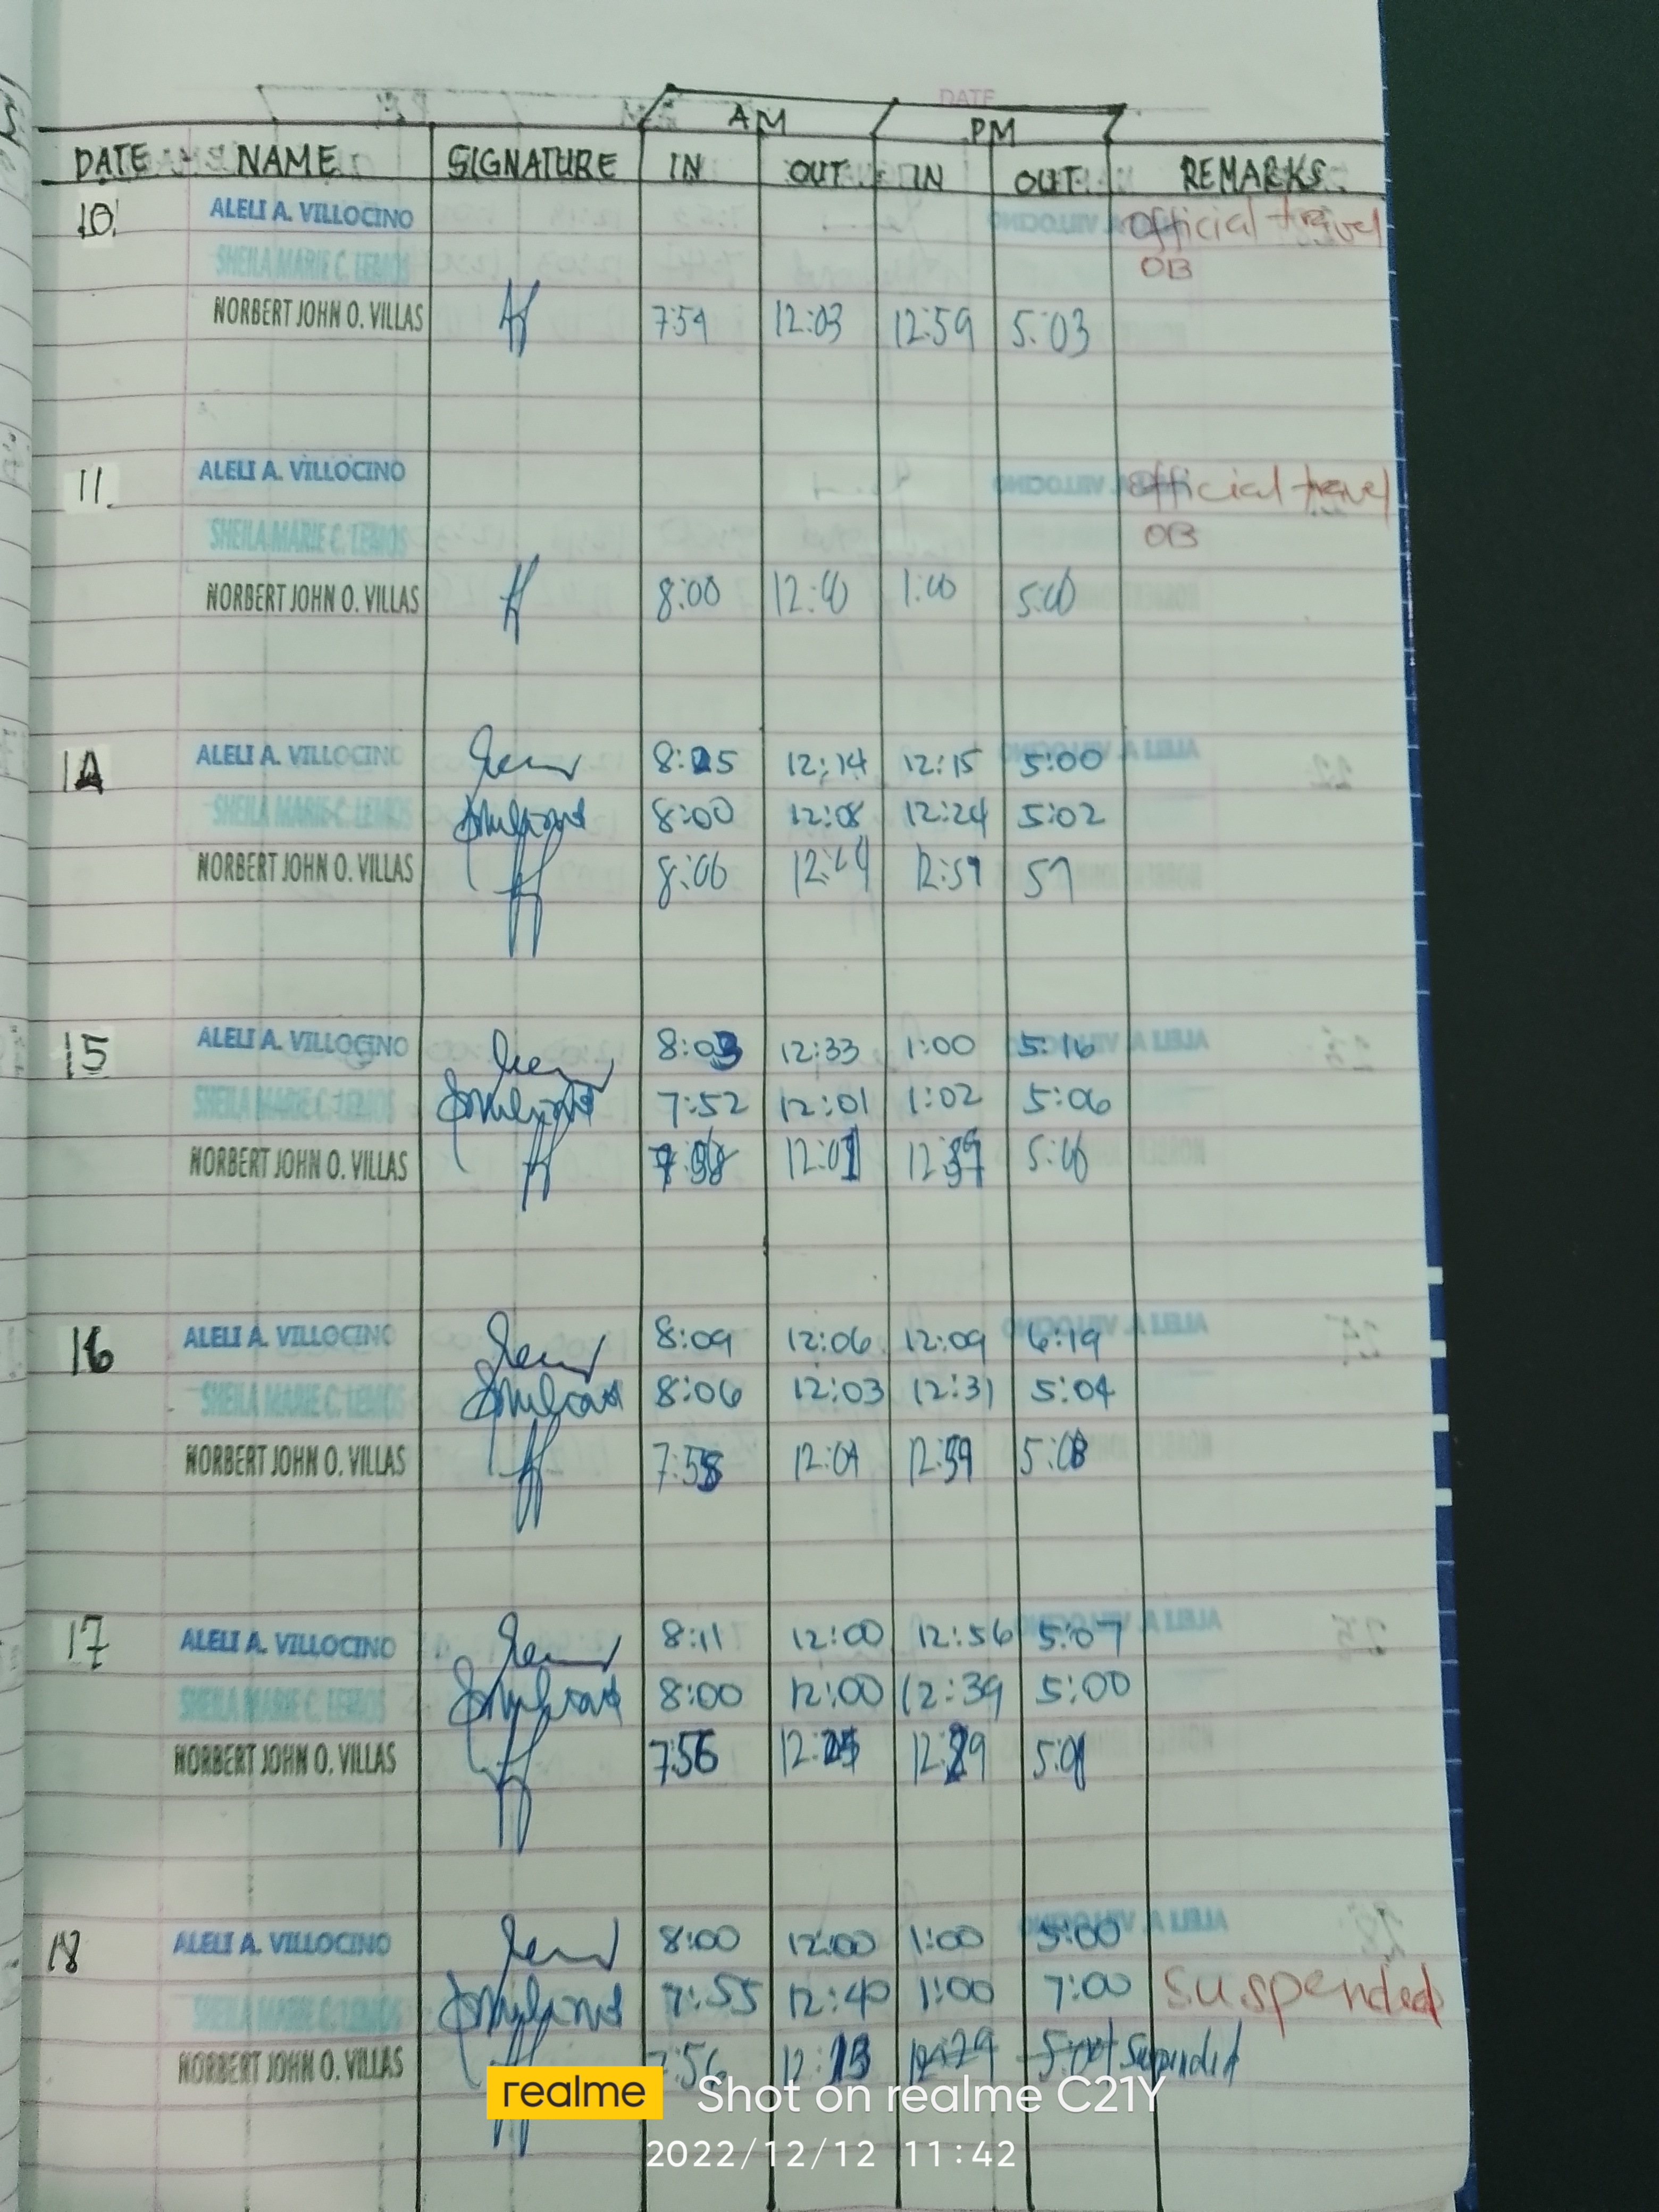 DATE
AM PM
DATE NAME SIGNATURE IN OUT IN OUT REMARKS
10 ALELI A. VILLOCINO official travel
SHEILA MARIE C. LEMOS OB
NORBERT JOHN O. VILLAS 7:59 12:03 12:59 5:03
11. ALELI A. VILLOCINO official travel
SHEILA MARIE C. LEMOS OB
NORBERT JOHN O. VILLAS 8:00 12:00 1:00 5:00
14 ALELI A. VILLOCINO 8:25 12:14 12:15 5:00
SHEILA MARIE C. LEMOS 8:00 12:08 12:24 5:02
NORBERT JOHN O. VILLAS 8:06 12:59
15 ALELI A. VILLOCINO 8:03 12:33 1:00 5:16
SHEILA MARIE C. LEMOS 7:52 12:01 1:02 5:06
NORBERT JOHN O. VILLAS 12:01
16 ALELI A. VILLOCINO 8:09 12:06 12:09 6:19
SHEILA MARIE C. LEMOS 8:06 12:03 12:31 5:04
NORBERT JOHN O. VILLAS 7:58 12:04 12:59 5:08
17 ALELI A. VILLOCINO 8:11 12:00 12:56 5:07
SHEILA MARIE C. LEMOS 8:00 12:00 12:39 5:00
NORBERT JOHN O. VILLAS 7:56 12:29
18 ALELI A. VILLOCINO 8:00 12:00 1:00 5:00
SHEILA MARIE C. LEMOS 7:55 12:40 1:00 7:00 Suspended
NORBERT JOHN O. VILLAS 7:56 12:13 Suspended
realme Shot on realme C21Y
2022/12/12 11:42